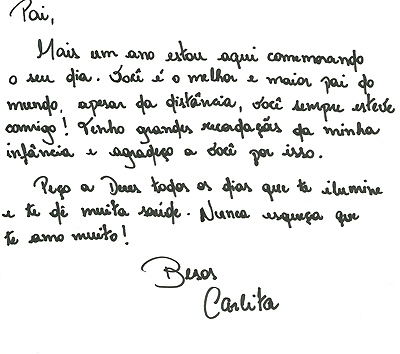 Pai,
Mais um ano estou aqui comemorando
o seu dia. Você é o melhor e maior pai do
mundo, apesar da distância, você sempre esteve
comigo! Tenho grandes recordações da minha
infância e agradeço a você por isso.
Peço a Deus todos os dias que te ilumine
e te dê muita saúde. Nunca esqueça que
te amo muito!
Besos
Carlita